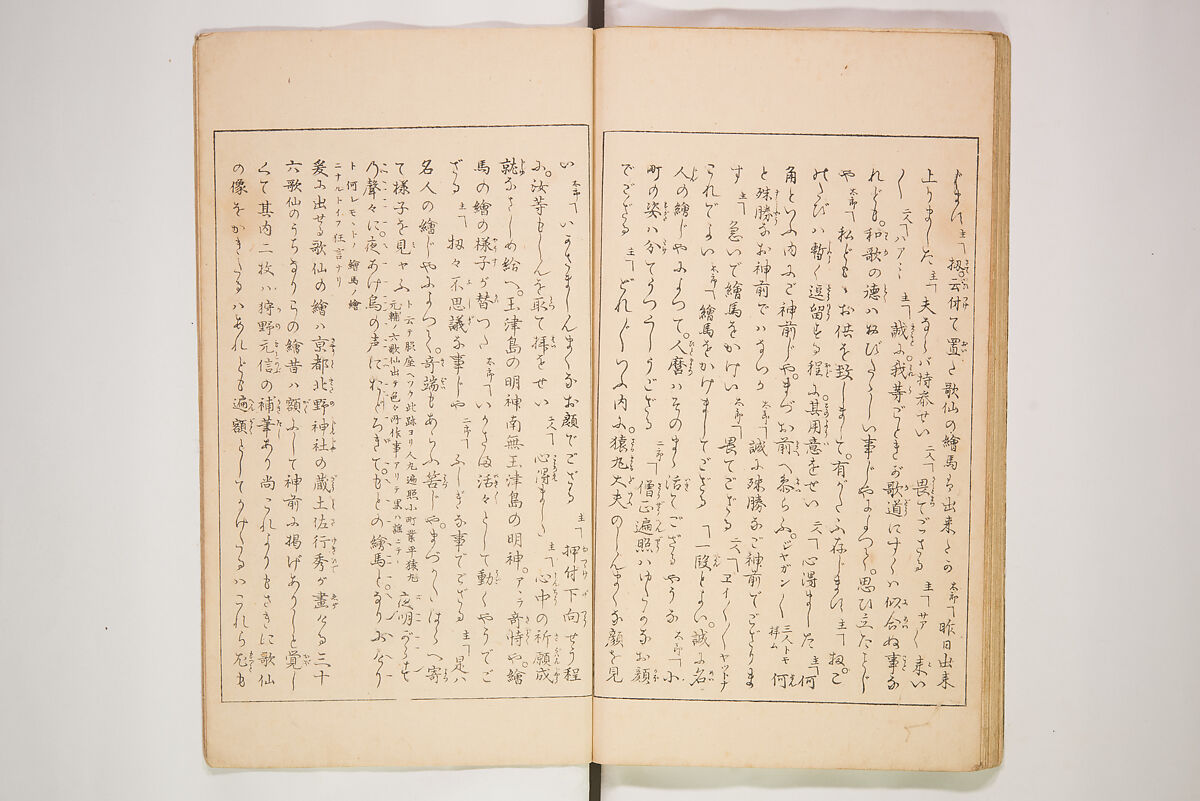 扨云付て置た歌仙の繪馬ハ出来たか 太郎 昨日出来
上りました 主 夫ならバ持参せい 二人 畏てござる 主 サア〳〵来い
〳〵 二人 ハアー 主 誠に我等ごときが歌道にすくハ似合ぬ事な
れども和歌の徳ハ 事じやによつて思ひ立たことじ
や 太郎 私どもゝお供を致しまして有がたふ存じます 主 扨こ
のたびハ暫く逗留する程に其用意をせい 二人 心得ました 主 何
角といふ内にご神前じやまづお前へ参らふジャガン〳〵 三人トモ拝ム 何
と殊勝なお神前でハないか 太郎 誠に殊勝なご神前でござりま
す 主 急いで繪馬をかけい 太郎 畏てござる 二人 エイ〳〵ヤットナ
これでよい 太郎 繪馬をかけましてござる 一段とよい誠に名
人の繪じやによつて人麿ハそのまゝ活てござるやうな 太郎 小
町の姿ハ分てうつくしうござる 二郎 僧正遍照ハゆたかなお顔
でござる 主 どれ〳〵といふ内に猿丸大夫のしんまくな顔を見
い 太郎 いかさましんまくなお顔でござる 主 押付下向せう程
に汝等もしんを取て拝をせい 二人 心得ました 主 心中の祈願成
就なさしめ給へ玉津島の明神南無玉津島の明神アヽラ奇特や繪
馬の繪の様子が替つた 太郎 いかさま活々として動くやうでご
ざる 主 扨々不思議な事じや 二郎 ふしぎな事でござる 主 是ハ
名人の繪じやによつて奇端もあらふ筈じやまづかたはらへ寄
て様子を見やふ ト云テ脇座ヘツク此跡ヨリ人丸遍照小町業平猿丸元輔ノ六歌仙出テ色々所作事アリテ果ハ謡ニテ 夜明がらす
乃聲々に夜あけ烏の声におどろきてもとの繪馬となりにけり
ト何レモモトノ繪馬ノ繪
ニナルトイフ狂言ナリ
爰に出せる歌仙の繪ハ京都北野神社の蔵土佐行秀が畫ける三十
六歌仙のうちなりこの繪昔ハ額にして神前に掲げありしと覚し
くて其内二枚ハ狩野元信の補筆あり尚これよりもさきに歌仙
の像をかきたるハあれども遍額としてかけたるハこれら尤も